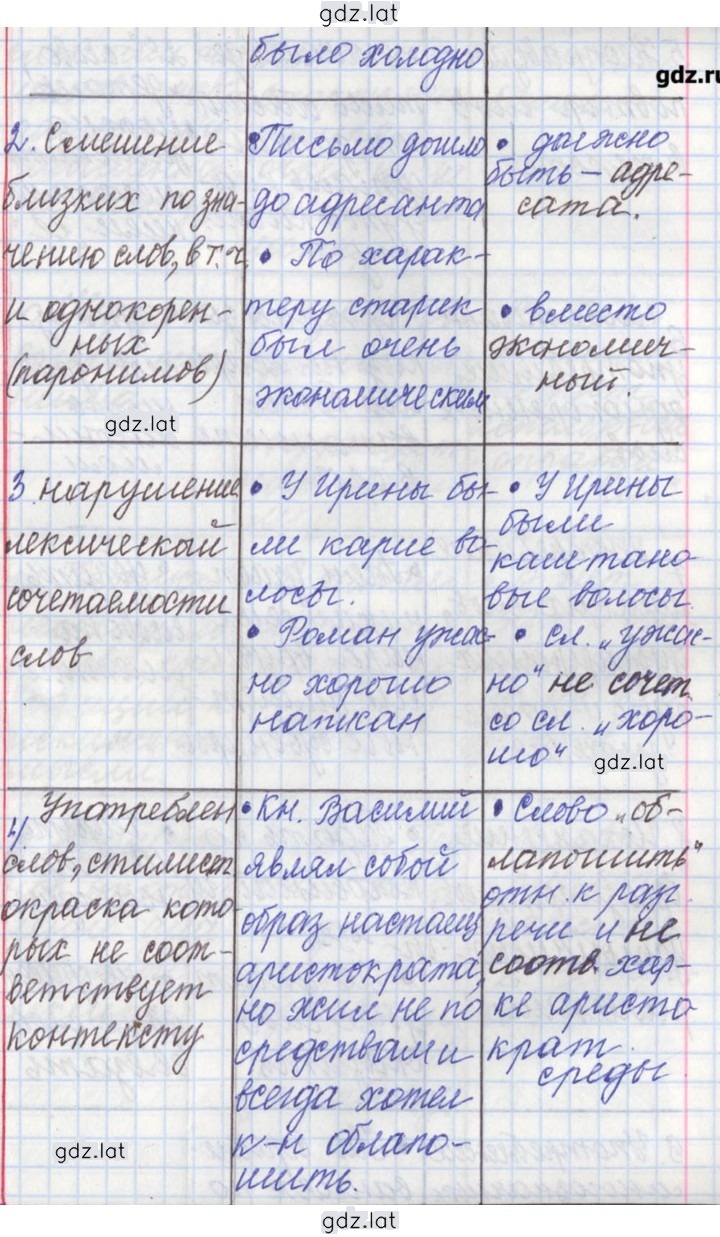 gdz.lat
было холодно
gdz.ru
2. Смешение
близких по зна-
чению слов, в т.ч.
и однокорен-
ных
(паронимов)
gdz.lat
• Письмо дошло
до адресанта
• По харак-
теру старик
был очень
экономическим
• должно
быть – адре-
сата.
• вместо
экономич-
ный.
3 нарушение
лексической
сочетаемости
слов
• У Ирины бы-
ли карие во-
лосы.
• Роман ужас-
но хорошо
написан
• У Ирины
были
каштано-
вые волосы.
• сл. „ужас-
но“ не сочет.
со сл. „хоро-
шо“
gdz.lat
4) Употреблен
слов, стилист
окраска кото-
рых не соот-
ветствует
контексту
gdz.lat
• Кн. Василий
являл собой
образ настоящ
аристократа,
но жил не по
средствам и
всегда хотел
к-н облапо-
шить.
• Слово „об-
лапошить“
отн. к разг.
речи и не
соотв. хар-
ке аристо
крат.
среды
gdz.lat